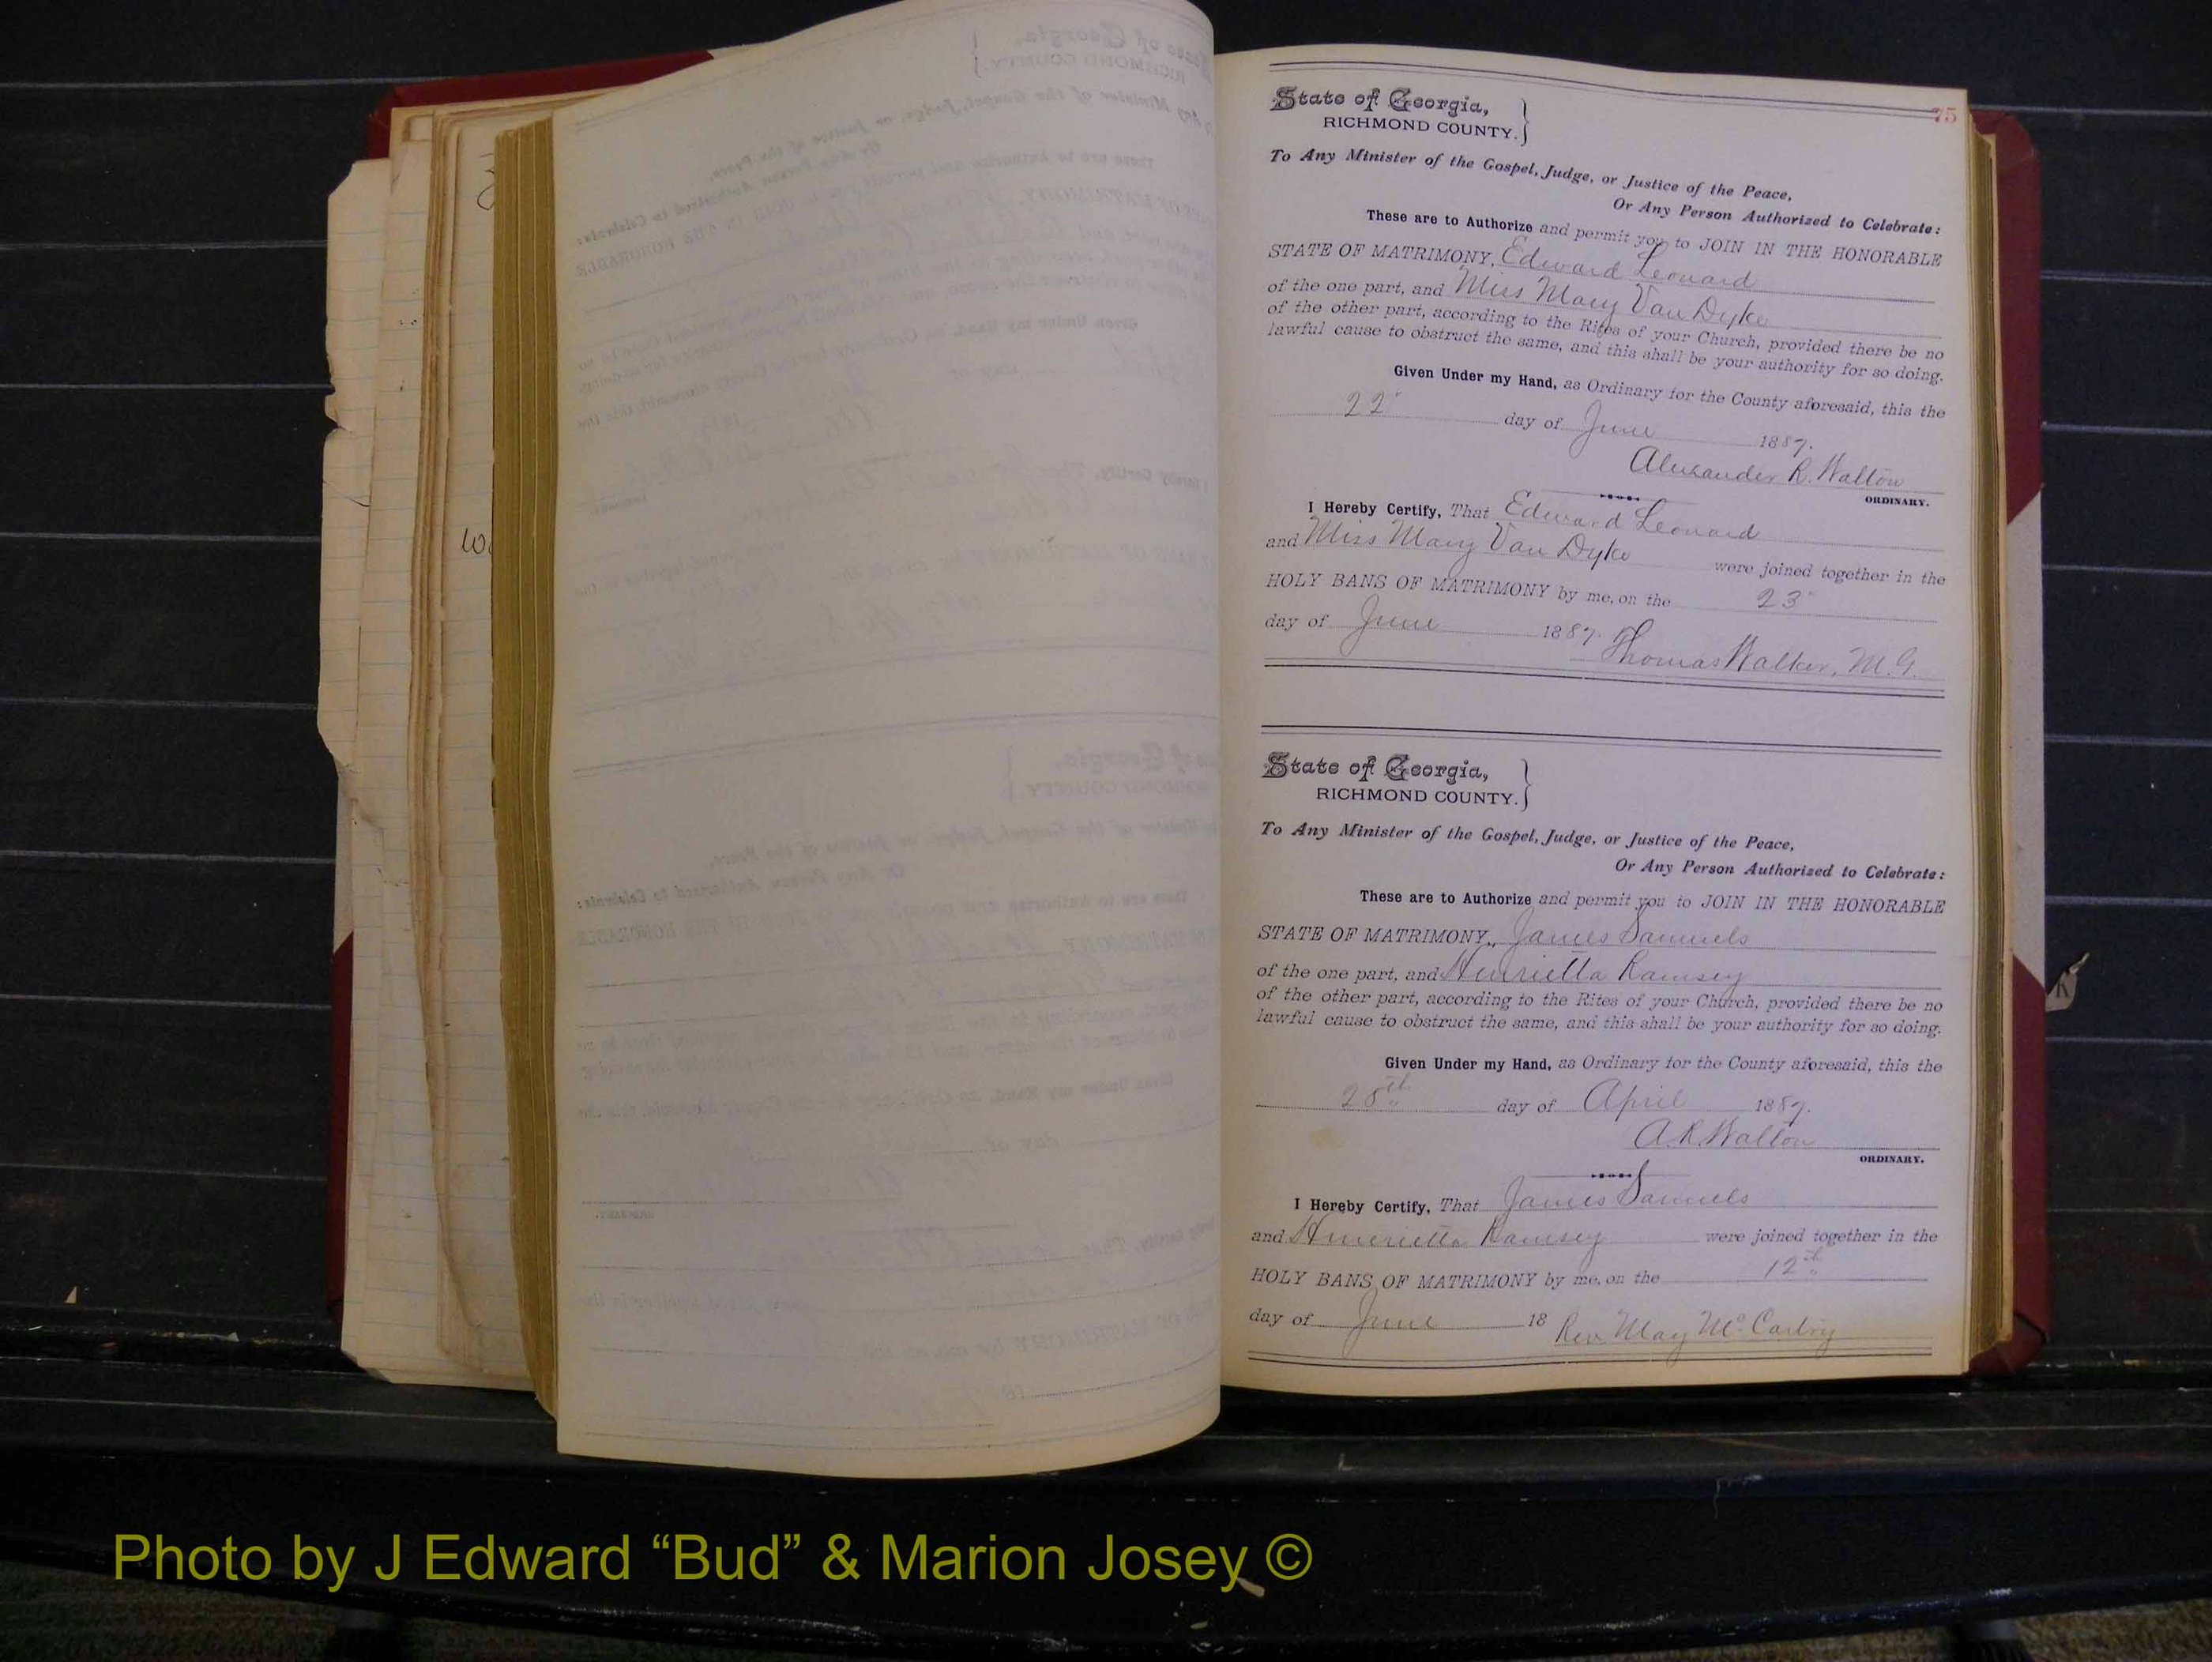 75
State of Georgia,
RICHMOND COUNTY.
To Any Minister of the Gospel, Judge, or Justice of the Peace,
Or Any Person Authorized to Celebrate:
These are to Authorize and permit you to JOIN IN THE HONORABLE
STATE OF MATRIMONY, Edward Leonard
of the one part, and Miss Mary Van Dyke
of the other part, according to the Rites of your Church, provided there be no
lawful cause to obstruct the same, and this shall be your authority for so doing.
Given Under my Hand, as Ordinary for the County aforesaid, this the
22" day of June 1887.
Alexander R. Walton
ORDINARY.
I Hereby Certify, That Edward Leonard
and Miss Mary Van Dyke were joined together in the
HOLY BANS OF MATRIMONY by me, on the 23"
day of June 1887. Thomas Walker, M.G.
State of Georgia,
RICHMOND COUNTY.
To Any Minister of the Gospel, Judge, or Justice of the Peace,
Or Any Person Authorized to Celebrate:
These are to Authorize and permit you to JOIN IN THE HONORABLE
STATE OF MATRIMONY, James Samuels
of the one part, and Henrietta Ramsey
of the other part, according to the Rites of your Church, provided there be no
lawful cause to obstruct the same, and this shall be your authority for so doing.
Given Under my Hand, as Ordinary for the County aforesaid, this the
day of April 1887.
A.R. Walton
ORDINARY.
I Hereby Certify, That James Samuels
and Henrietta Ramsey were joined together in the
HOLY BANS OF MATRIMONY by me, on the 12th
day of June 18 Rev May Mc
Photo by J Edward “Bud” & Marion Josey ©